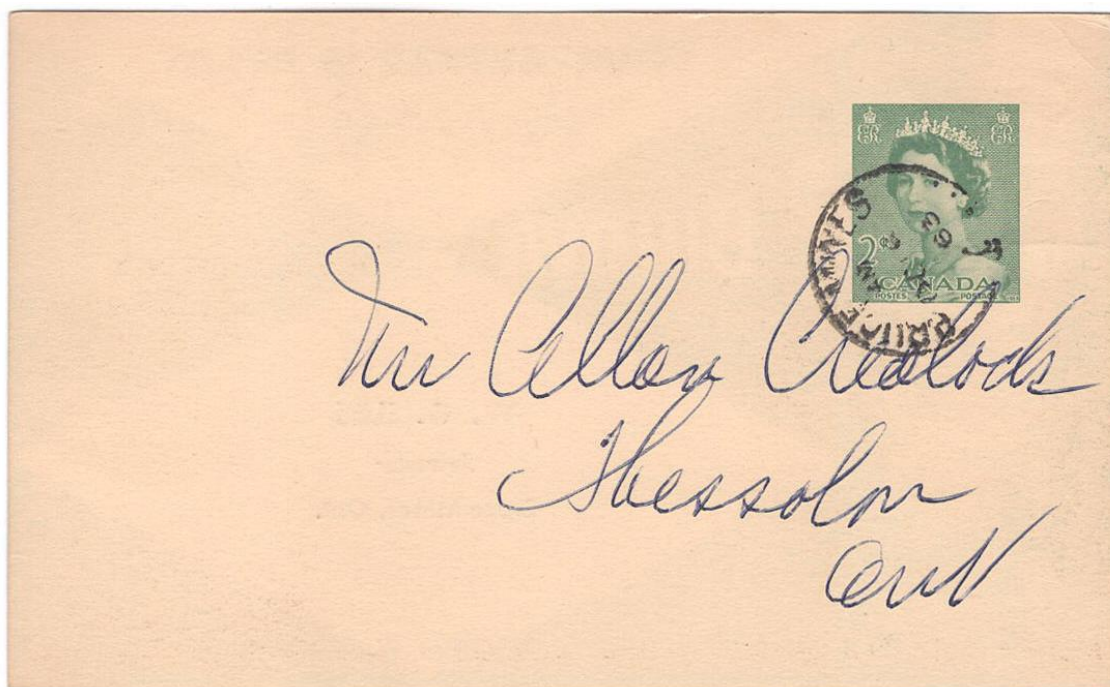 ER ER
2¢
CANADA
POSTES POSTAGE
BRUCE MINES
AM
63
Mr Allan Crealock
Thessalon
Ont